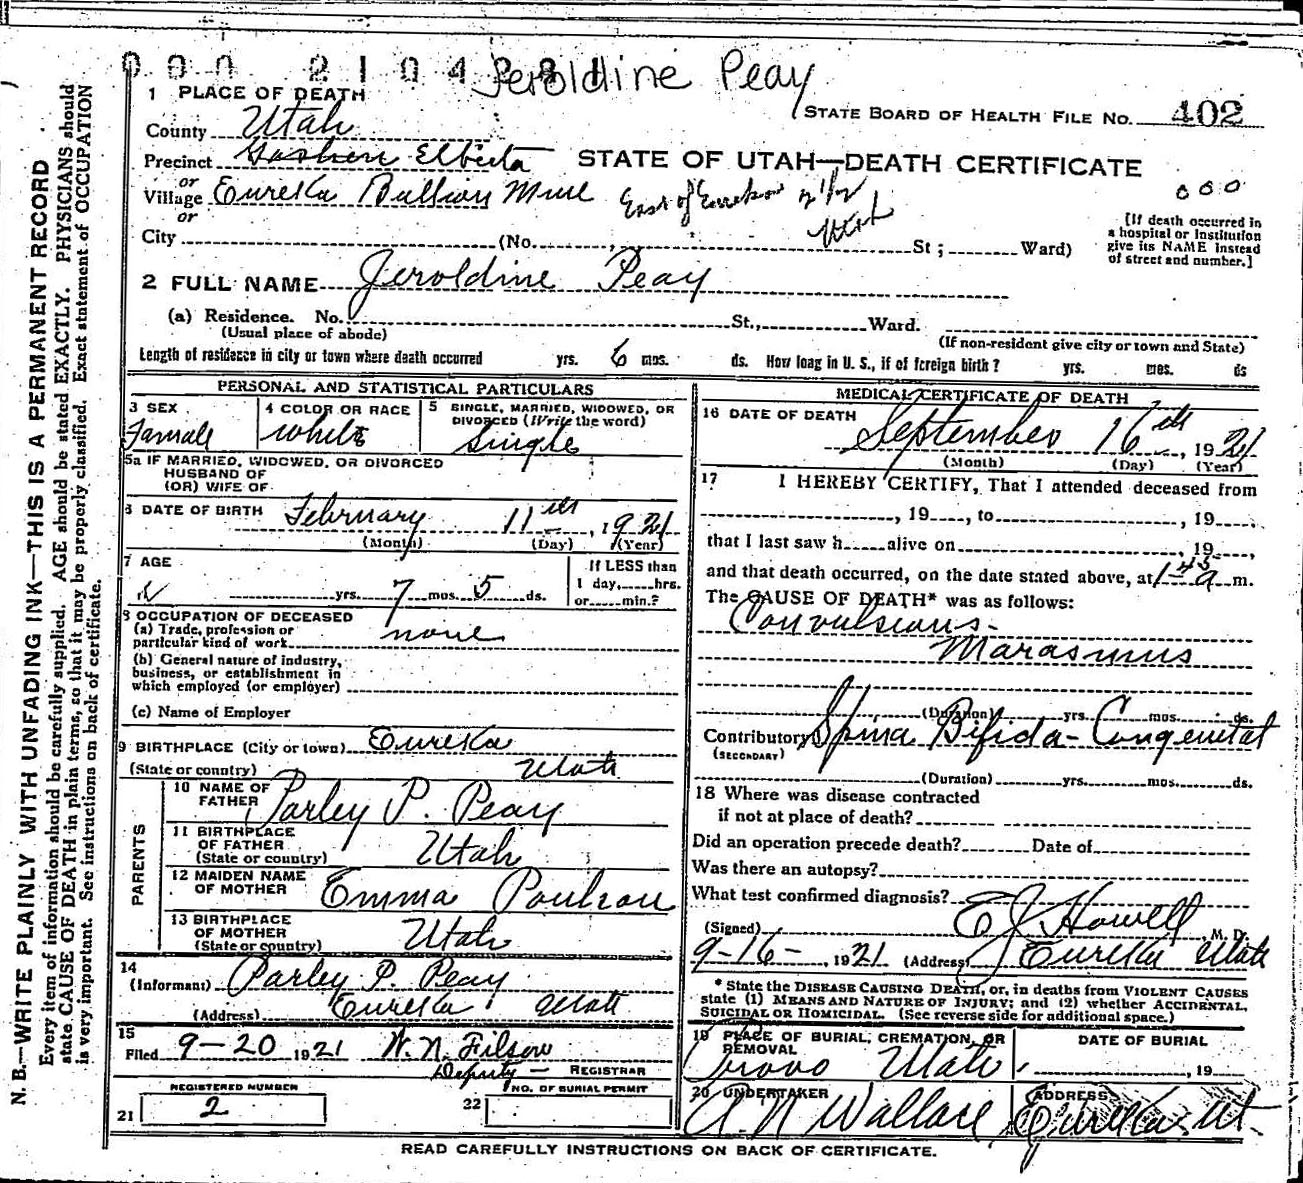 Jeroldine Peay
1 PLACE OF DEATH
STATE BOARD OF HEALTH FILE No. 402
County Utah
Precinct Goshen Elberta
STATE OF UTAH—DEATH CERTIFICATE
or
Village Eureka Bullion Mine East of Eureka 2 1/2
000
or
Utah
City (No. St; Ward)
[If death occurred in
a hospital or institution
give its NAME instead
of street and number.]
2 FULL NAME Jeroldine Peay
(a) Residence. No. St., Ward.
(Usual place of abode)
(If non-resident give city or town and State)
Length of residence in city or town where death occurred yrs. 6 mos. ds. How long in U. S., if of foreign birth? yrs. mos. ds
PERSONAL AND STATISTICAL PARTICULARS
3 SEX
Famale
4 COLOR OR RACE
White
5 SINGLE, MARRIED, WIDOWED, OR
DIVORCED (Write the word)
Single
5a IF MARRIED, WIDOWED, OR DIVORCED
HUSBAND OF
(OR) WIFE OF
6 DATE OF BIRTH February 11th, 1921
(Month) (Day) (Year)
7 AGE
yrs. 7 mos. 5 ds.
If LESS than
1 day, hrs.
or min.?
8 OCCUPATION OF DECEASED
(a) Trade, profession or
particular kind of work none
(b) General nature of industry,
business, or establishment in
which employed (or employer)
(c) Name of Employer
9 BIRTHPLACE (City or town) Eureka
(State or country) Utah
PARENTS
10 NAME OF
FATHER Parley P. Peay
11 BIRTHPLACE
OF FATHER
(State or country) Utah
12 MAIDEN NAME
OF MOTHER Emma Poulson
13 BIRTHPLACE
OF MOTHER
(State or country) Utah
14
(Informant) Parley P. Peay
(Address) Eureka Utah
15
Filed 9-20 1921 W. N. Filsow
Deputy — REGISTRAR
REGISTERED NUMBER
NO. OF BURIAL PERMIT
21 2 22
MEDICAL CERTIFICATE OF DEATH
16 DATE OF DEATH
September 16th, 1921
(Month) (Day) (Year)
17 I HEREBY CERTIFY, That I attended deceased from
, 19, to , 19
that I last saw h alive on , 19
and that death occurred, on the date stated above, at 1-45 a m.
The CAUSE OF DEATH* was as follows:
Convulsions-
Marasmus
(Duration) yrs. mos. ds.
Contributory Spina Bifida - Congenital
(SECONDARY)
(Duration) yrs. mos. ds.
18 Where was disease contracted
if not at place of death?
Did an operation precede death? Date of
Was there an autopsy?
What test confirmed diagnosis?
(Signed) E J Howell, M. D.
9-16-, 1921 (Address) Eureka Utah
* State the DISEASE CAUSING DEATH, or, in deaths from VIOLENT CAUSES
state (1) MEANS AND NATURE OF INJURY; and (2) whether ACCIDENTAL,
SUICIDAL OR HOMICIDAL. (See reverse side for additional space.)
19 PLACE OF BURIAL, CREMATION, OR
REMOVAL
Provo Utah
DATE OF BURIAL
, 19
20 UNDERTAKER
A. N Wallace
ADDRESS
Eureka Ut.
READ CAREFULLY INSTRUCTIONS ON BACK OF CERTIFICATE.
N. B.—WRITE PLAINLY WITH UNFADING INK—THIS IS A PERMANENT RECORD
Every item of information should be carefully supplied. AGE should be stated EXACTLY. PHYSICIANS should
state CAUSE OF DEATH in plain terms, so that it may be properly classified. Exact statement of OCCUPATION
is very important. See instructions on back of certificate.